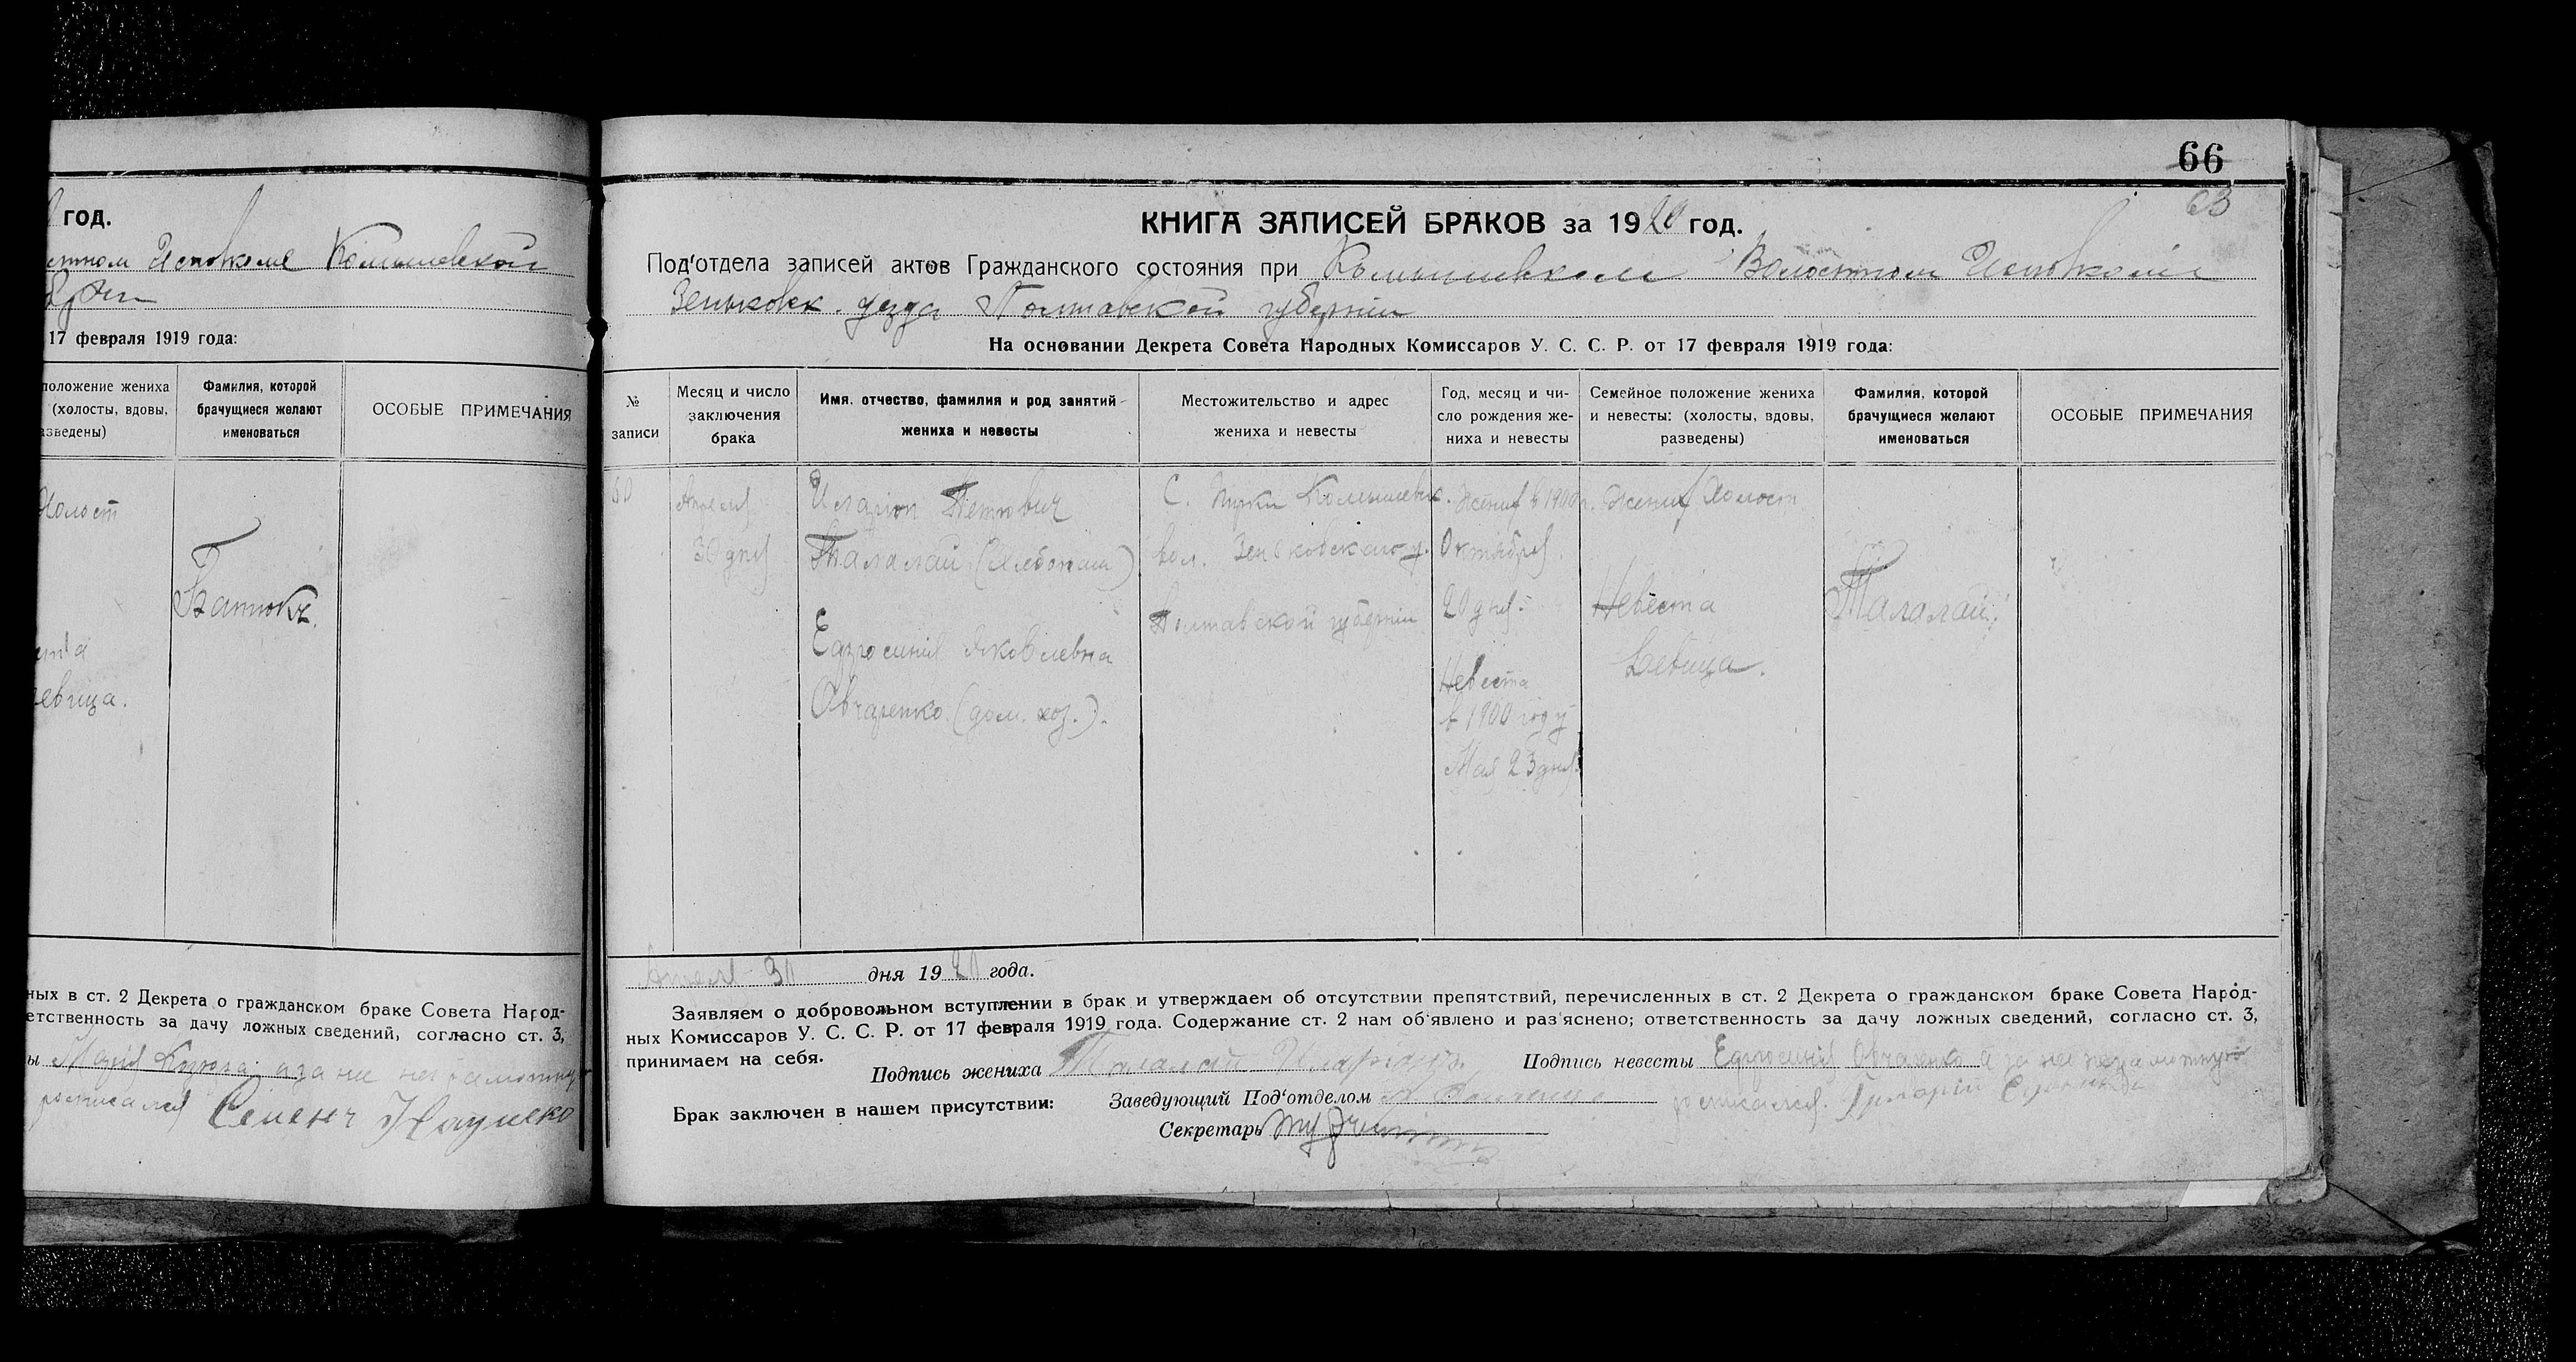 год.
Исполкоме Комышевской
17 февраля 1919 года:
положение жениха
(холосты, вдовы,
Фамилия, которой
брачущиеся желают
именоваться
ОСОБЫЕ ПРИМЕЧАНИЯ
Холост
Батюкъ.
66
63
КНИГА ЗАПИСЕЙ БРАКОВ за 1920 год.
Под'отдела записей актов Гражданского состояния при Комышевском Волостном Исполкоме
Зеньковск. уезда Полтавской губернии
На основании Декрета Совета Народных Комиссаров У. С. С. Р. от 17 февраля 1919 года:
№
записи
Месяц и число
заключения
брака
Имя, отчество, фамилия и род занятий
жениха и невесты
Местожительство и адрес
жениха и невесты
Год, месяц и чи-
сло рождения же-
ниха и невесты
Семейное положение жениха
и невесты: (холосты, вдовы,
разведены)
Фамилия, которой
брачущиеся желают
именоваться
ОСОБЫЕ ПРИМЕЧАНИЯ
Апреля
30 дня
Иларіон Петрович
Талалай (хлебопаш)
Евфросинія Яковлевна
Овчаренко (дом. хоз.).
С. Комышевск.
вол. Зеньковского у.
Полтавской губерніи
Жених в 1900 г.
Октября
20 дня.
Невеста
в 1900 году
Мая 23 дня.
Жених Холост
Невеста
Девица.
Талалай
Апреля 30 дня 1920 года.
ных в ст. 2 Декрета о гражданском браке Совета Народ-
ответственность за дачу ложных сведений, согласно ст. 3,
а за не неграмотну
росписался Семенъ Науменко
Заявляем о добровольном вступлении в брак и утверждаем об отсутствии препятствий, перечисленных в ст. 2 Декрета о гражданском браке Совета Народ-
ных Комиссаров У. С. С. Р. от 17 февраля 1919 года. Содержание ст. 2 нам об'явлено и раз'яснено; ответственность за дачу ложных сведений, согласно ст. 3,
принимаем на себя.
Подпись жениха Талалай
Подпись невесты Евфросинія Овчаренко а за не неграмотную
росписался
Брак заключен в нашем присутствии:
Заведующий Под'отделом
Секретарь